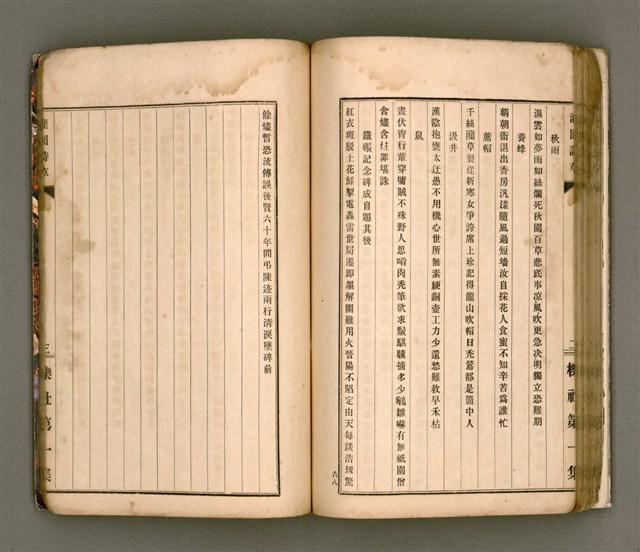 秋雨
濕雲如夢雨如絲爛死秋園百草悲底事凉風吹更急决明獨立恐難期
養蜂
朝朝衙退出香房汎漾隨風過短墻汝自採花人食蜜不知辛苦為誰忙
蓆帽
千絲隨草製從新寒女爭誇席上珍記得龍山吹帽日禿翁都是箇中人
汲井
漢陰抱甕太迂愚不用機心世所無素綆銅壺工力少還愁難救旱禾枯
鼠
晝伏宵行輩穿墉賊不殊野人思啗肉禿筆欲求鬚騏驥捕多少鵷雛嚇有無祇園僧
舍燼含炷罪堪誅
鐵砲記念碑成自題其後
紅衣斑駁土花鮮掣電轟雷世局遷即墨解圍難用火晉陽不陷定由天每談浩劫驚
六八
餘燼暫恐流傳誤後賢六十年間弔陳迹兩行清淚墜碑前
三
櫟社第一集
二
櫟社第一集